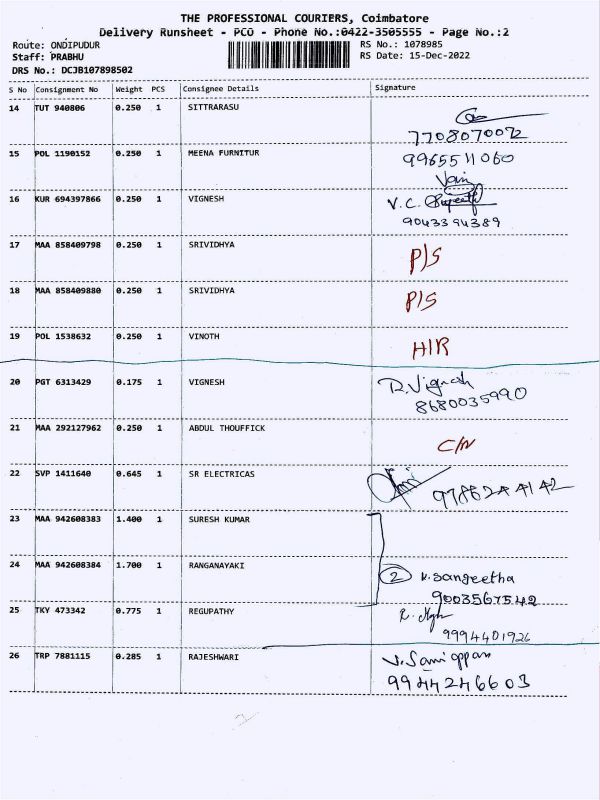 THE PROFESSIONAL COURIERS, Coimbatore
Delivery Runsheet - PCO - Phone No.:0422-3505555 - Page No.:2
Route: ONDIPUDUR RS No.: 1078985
Staff: PRABHU RS Date: 15-Dec-2022
DRS No.: DCJB107898502
S No Consignment No Weight PCS Consignee Details Signature
14 TUT 940806 0.250 1 SITTRARASU
7708070072
15 POL 1190152 0.250 1 MEENA FURNITUR 9965511060
16 KUR 694397866 0.250 1 VIGNESH V.C.
9043394389
17 MAA 858409798 0.250 1 SRIVIDHYA P/S
18 MAA 858409880 0.250 1 SRIVIDHYA P/S
19 POL 1538632 0.250 1 VINOTH H/R
20 PGT 6313429 0.175 1 VIGNESH R.Vignesh
8680035990
21 MAA 292127962 0.250 1 ABDUL THOUFFICK
C/N
22 SVP 1411640 0.645 1 SR ELECTRICAS
23 MAA 942608383 1.400 1 SURESH KUMAR
24 MAA 942608384 1.700 1 RANGANAYAKI
2 K.Sangeetha
9003567542
25 TKY 473342 0.775 1 REGUPATHY
9994401926
26 TRP 7881115 0.285 1 RAJESHWARI V.Samiappan
9944246603